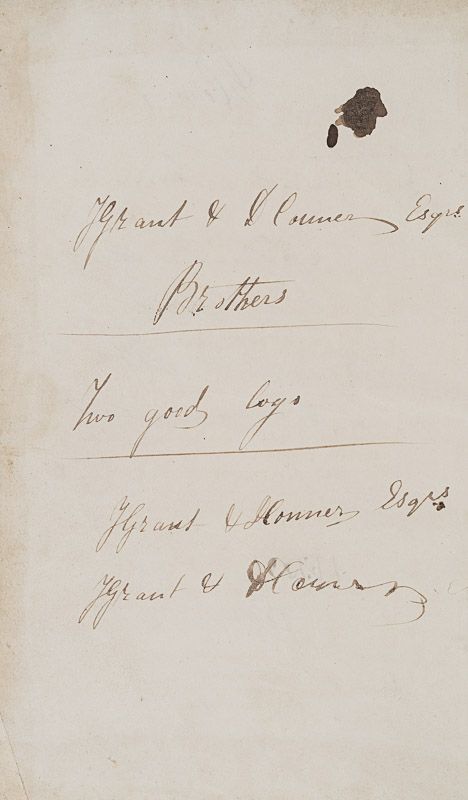 JGrant & D Conner Esqrs
Brothers
Two good logs
JGrant & DConner Esqrs
JGrant & DConner